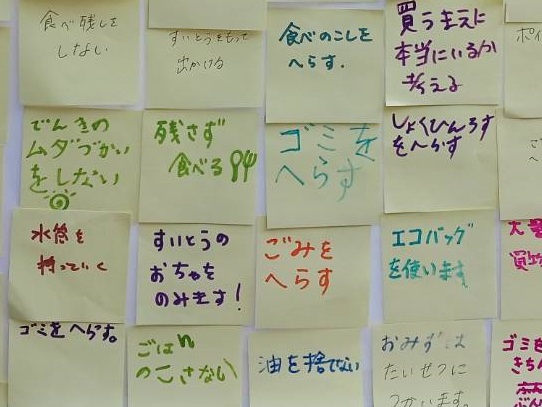 食べ残しを
しない
すいとうをもって
出かける
食べのこしを
へらす.
買うまえに
本当にいるか
考える
ポイ
でんきの
ムダづかい
をしない
残さず
食べる
ゴミを
へらす
しょくひんろす
をへらす
水筒を
持っていく
すいとうの
おちゃを
のみます!
ごみを
へらす
エコバッグ
を使います
大量
ゴミをへらす。
ごはん
のこさない
油を捨てない
おみずは
たいせつに
つかいます。
ゴミを
きち
ぶん